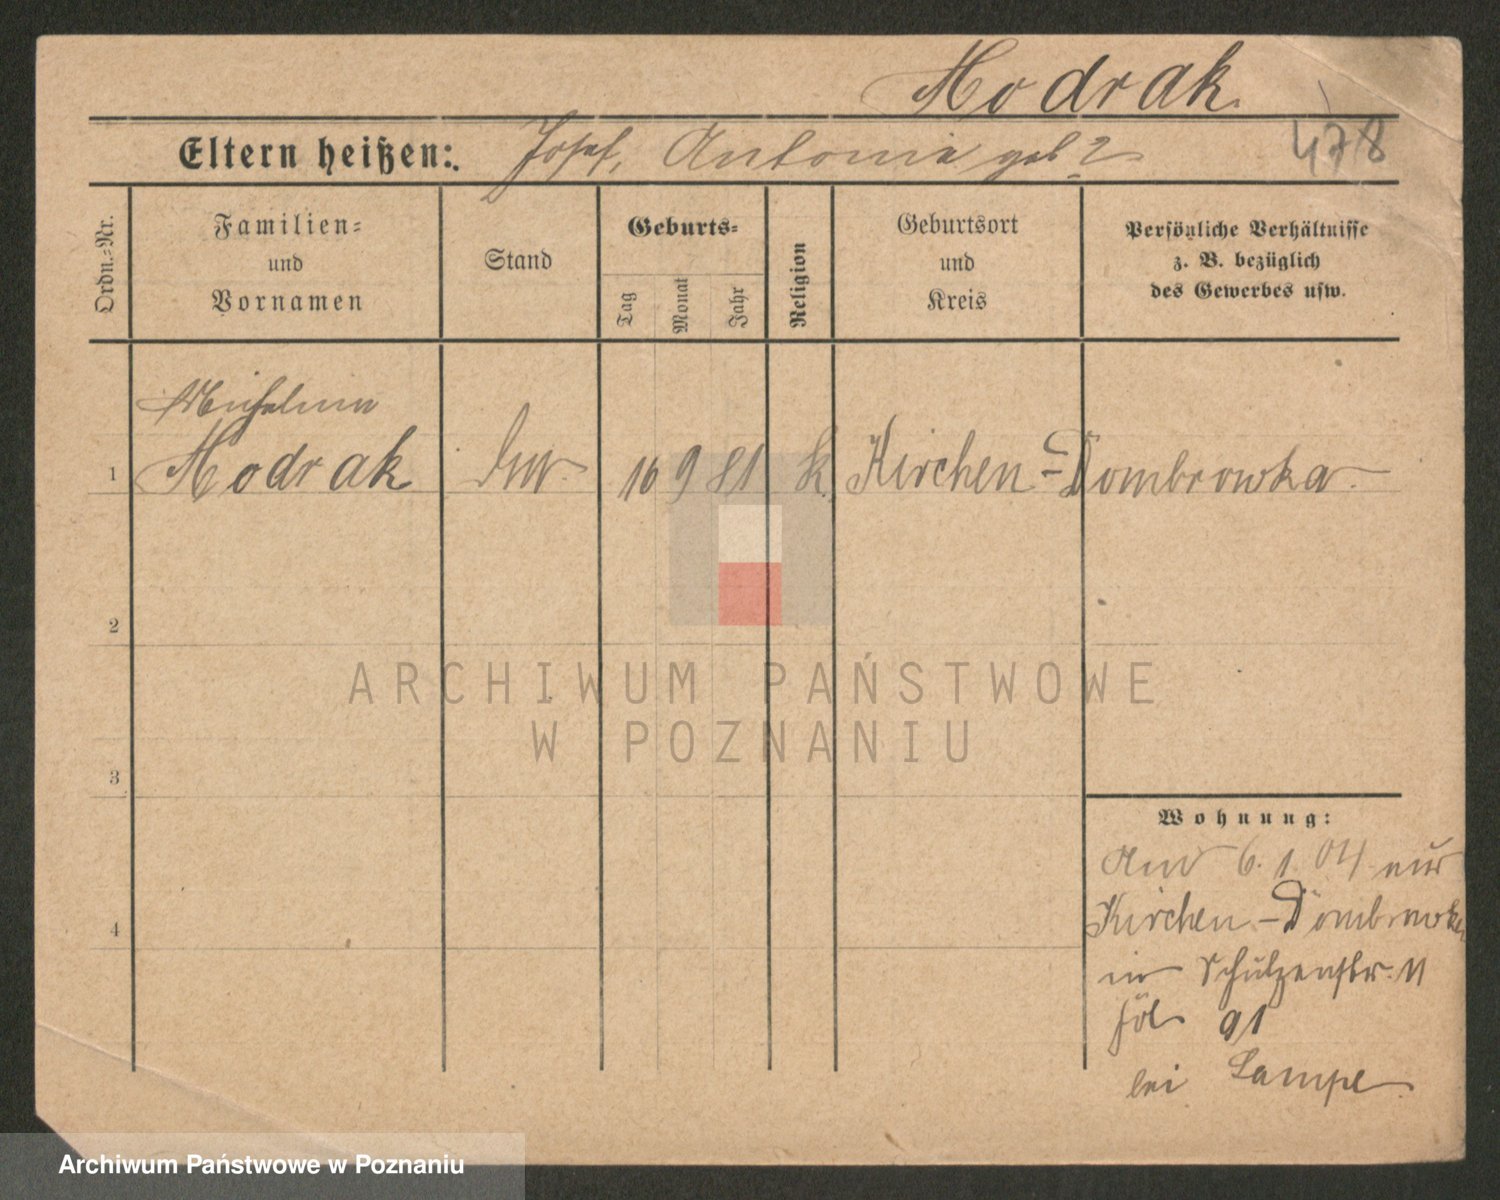 Modrak
Eltern heißen: Josef, Antonie geb ?
478
Ordn.=Nr.
Familien=
und
Vornamen
Stand
Geburts=
Tag
Monat
Jahr
Religion
Geburtsort
und
Kreis
Persönliche Verhältnisse
z. B. bezüglich
des Gewerbes usw.
Michalina
1 Modrak 16 9 81 k. Kirchen-Dombrowka
2
3
4
ARCHIWUM PAŃSTWOWE
W POZNANIU
Wohnung:
6. 1. 04 aus
Kirchen-Dombrowka
in Schulzenstr. 11
Föl 91
bei Lampe
Archiwum Państwowe w Poznaniu